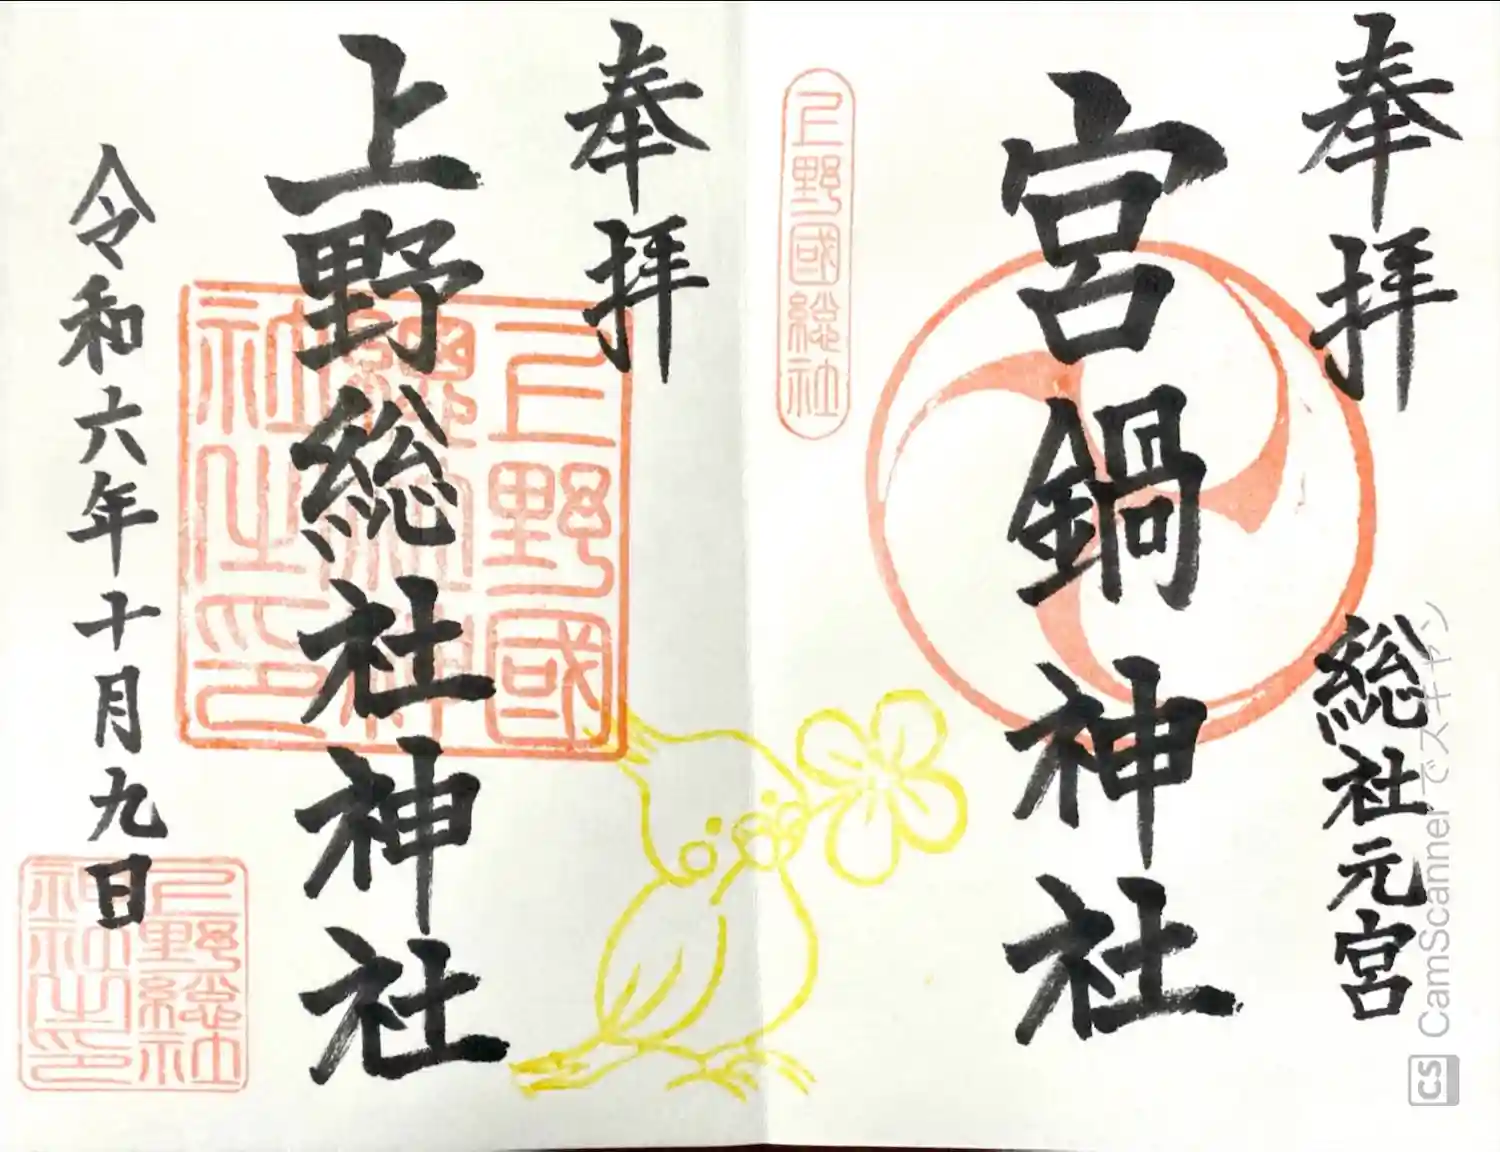 奉拝
総社元宮
宮鍋神社
上野國総社
奉拝
上野総社神社
上野國
總社神
社之印
令和六年十月九日
上野総社
神社之印
CamScannerでスキャン
CS